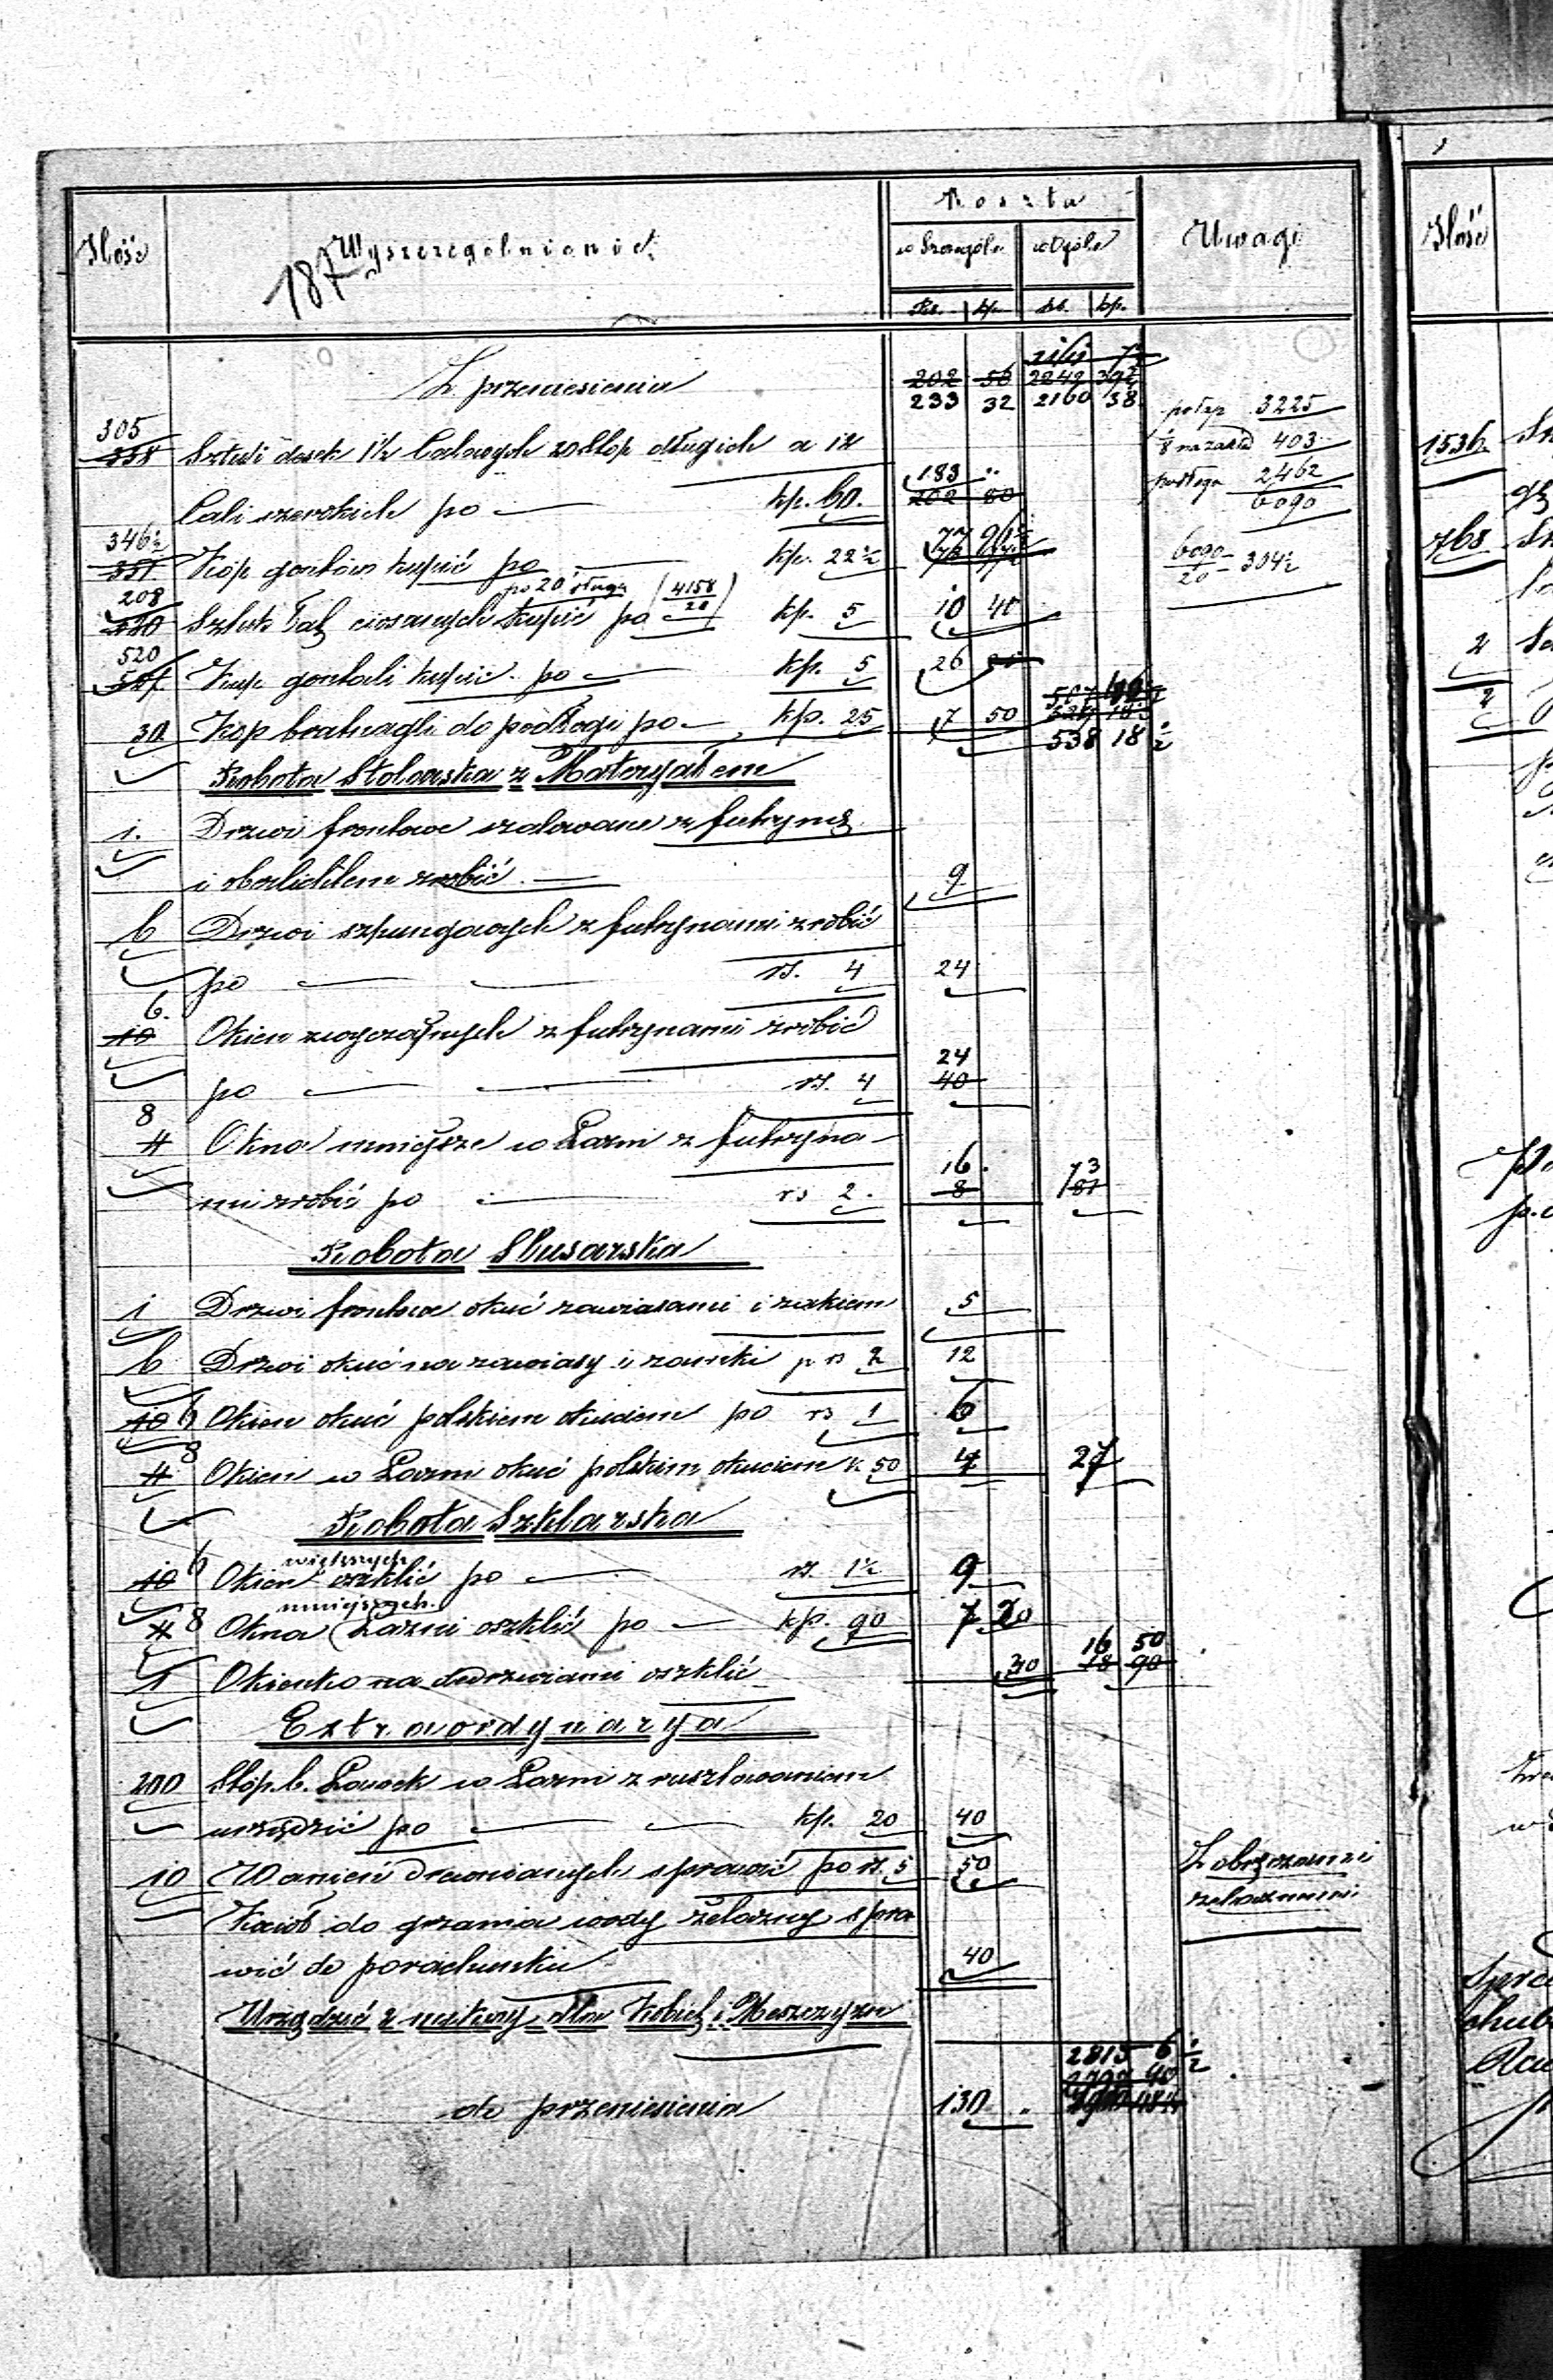 Ilość Wyszczególnienie Koszta Uwagi Ilość
187
w Szczególe w Ogóle
Rs. kp. rb. kp.
Z przeniesienia 202 56 2242 39½
233 32 2160 38
pułap 3225
305
338 Sztuk desek 1½ Calowych 20 Stop długich a 12
⅛ na zakład 403
183 ..
Cali szerokich po — kp. 60. 202 80
podłoga 2462
6090
346½
351. Kop gontów kupić po — kp. 22½
6090/20 – 304½
po 20' długa
208
Sztuk Łat ciosanych kupić po (4158/20) kp. 5 10 40
520
Kop gontali kupić po — kp. 5 26
30 Kop bratnagli do podłogi po — kp. 25 7 50
538 18½
Robota Stolarska z Materyałem
1. Drzwi frontowe szalowane z futryną
i oberlichtem zrobić — 9
6 Drzwi szpungowych z futrynami zrobić
po — — rs. 4 24
6.
10 Okien zwyczajnych z futrynami zrobić
24
po — — rs. 4 40
8
4 Okna mniejsze w Łaźni z futryna-
16. 73
mi zrobić po — rs 2. 8 81
Robota Slusarska
1 Drzwi frontowe okuć zawiasami i zamkiem 5
6 Drzwi okuć na zawiasy i zamki p rs 2 12
10 6 Okien okuć polskiem okuciem po rs 1 6
4 8 Okien w Łaźni okuć polskim okuciem k 50 4 27
Robota Szklarska
większych
10 6 Okien oszklić po — rs. 1½ 9
mniejszych
4 8 Okna Łaźni oszklić po — kp. 90 7 20
16 50
1 Okienko na dwrzwiami oszklić 30 18 90
Extraordynarya
200 Stóp. b. Ławek w Łaźni z rusztowaniem
urządzić po — — kp. 20 40
10 Wanien drewnianych sprawić po rs. 5 50
Z obręczami
żelaznemi
Kocioł do grzania wody żelazny spra
wić do porachunku 40
Urządzić 2 mikwy dla Kobiet i Meszczyzn
2815 6½
do przeniesienia 130 "
1536
768
2
2